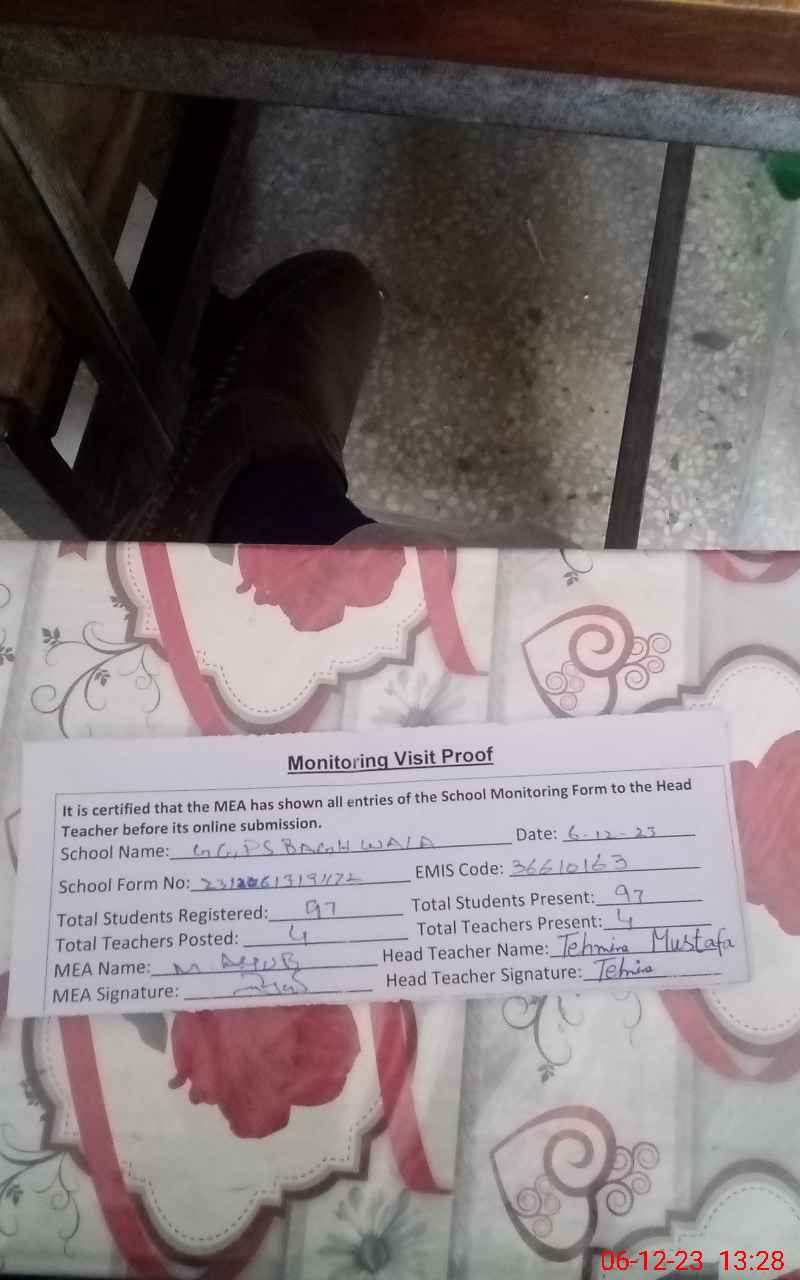 Monitoring Visit Proof
It is certified that the MEA has shown all entries of the School Monitoring Form to the Head
Teacher before its online submission.
School Name: GGPS BAGH WALA Date: 6-12-23
School Form No: EMIS Code: 36610163
Total Students Registered: 97 Total Students Present: 97
Total Teachers Posted: 4 Total Teachers Present: 4
MEA Name: M. AYYUB Head Teacher Name: Tehmina Mustafa
MEA Signature: Head Teacher Signature:
06-12-23 13:28